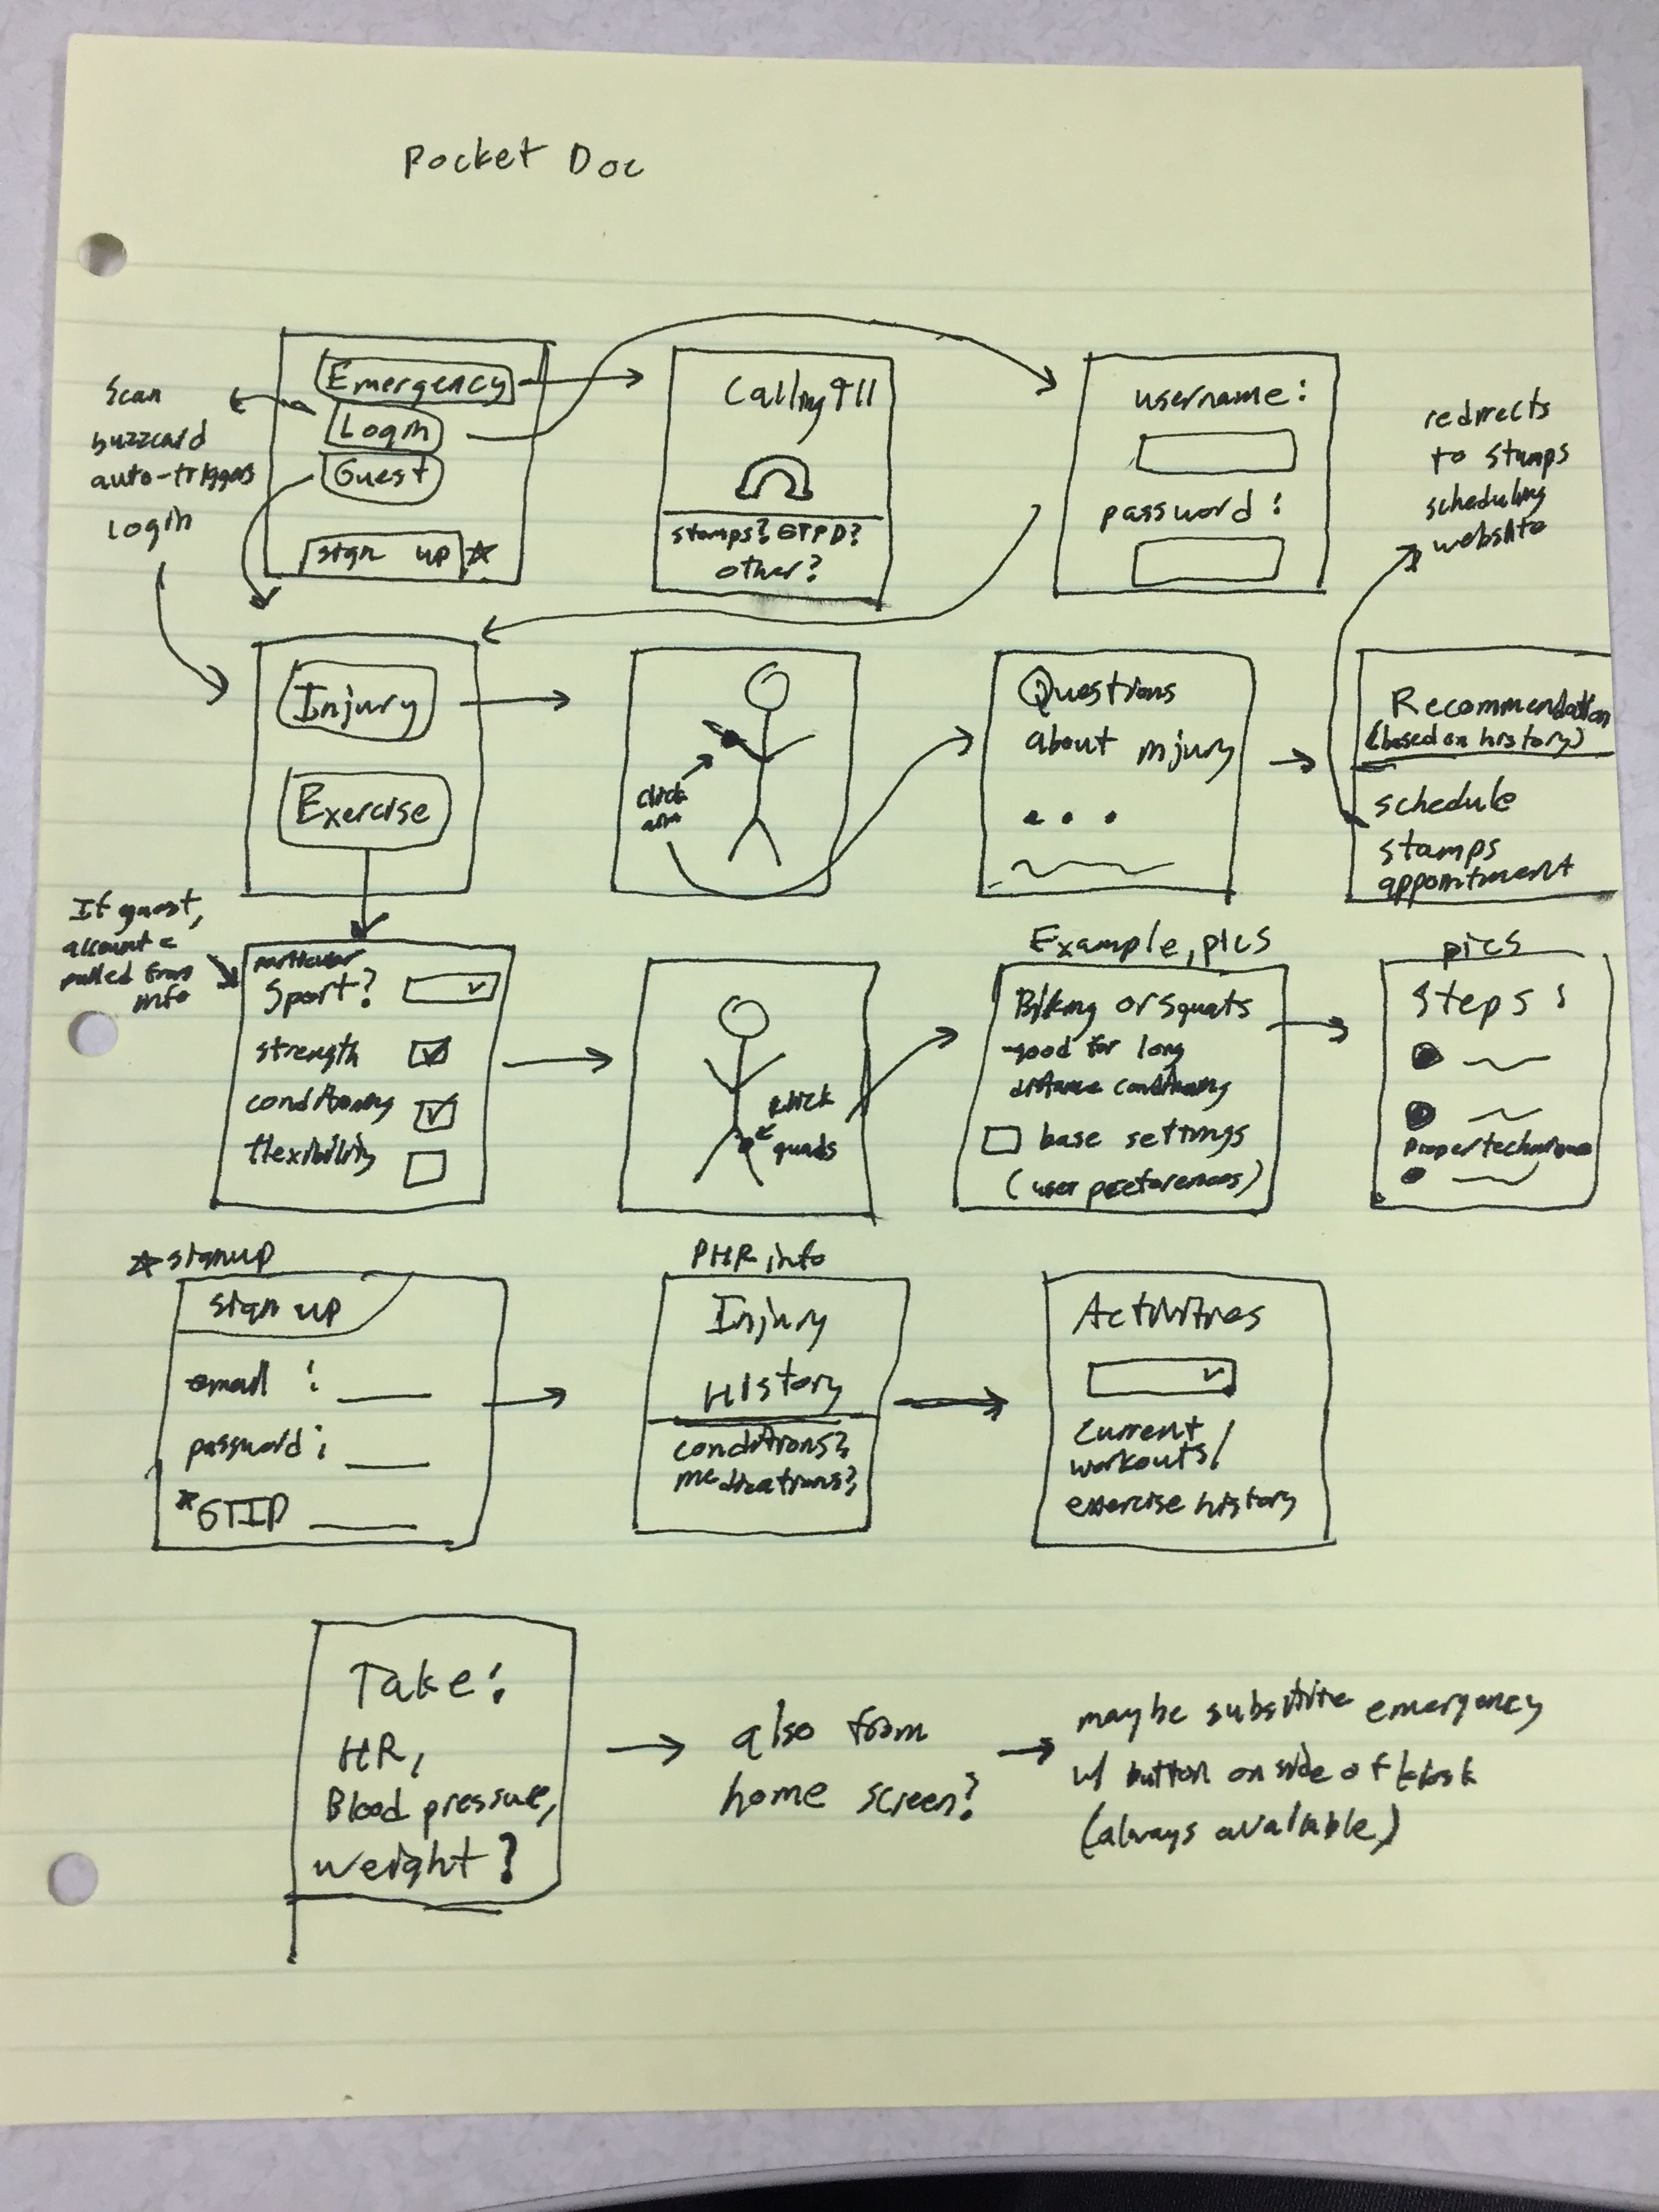 Pocket Doc
Scan
buzzcard
auto-triggers
login
Emergency
Login
Guest
sign up
Calling 911
stamps? GTPD?
other?
username:
password:
redirects
to stamps
scheduling
website
Injury
Exercise
click
arm
Questions
about injury
...
Recommendation
(based on history)
schedule
stamps
appointment
If guest,
account
pulled from
info
particular
Sport?
strength
conditioning
flexibility
click
quads
Example, pics
Biking or squats
-good for long
distance conditioning
base settings
(user preferences)
pics
Steps:
Proper technique
signup
sign up
email :
password:
*GTID
PHR info
Injury
History
conditions?
medications?
Activities
current
workouts/
exercise history
Take:
HR,
Blood pressure,
weight?
also from
home screen?
maybe substitute emergency
w/ button on side of kiosk
(always available)